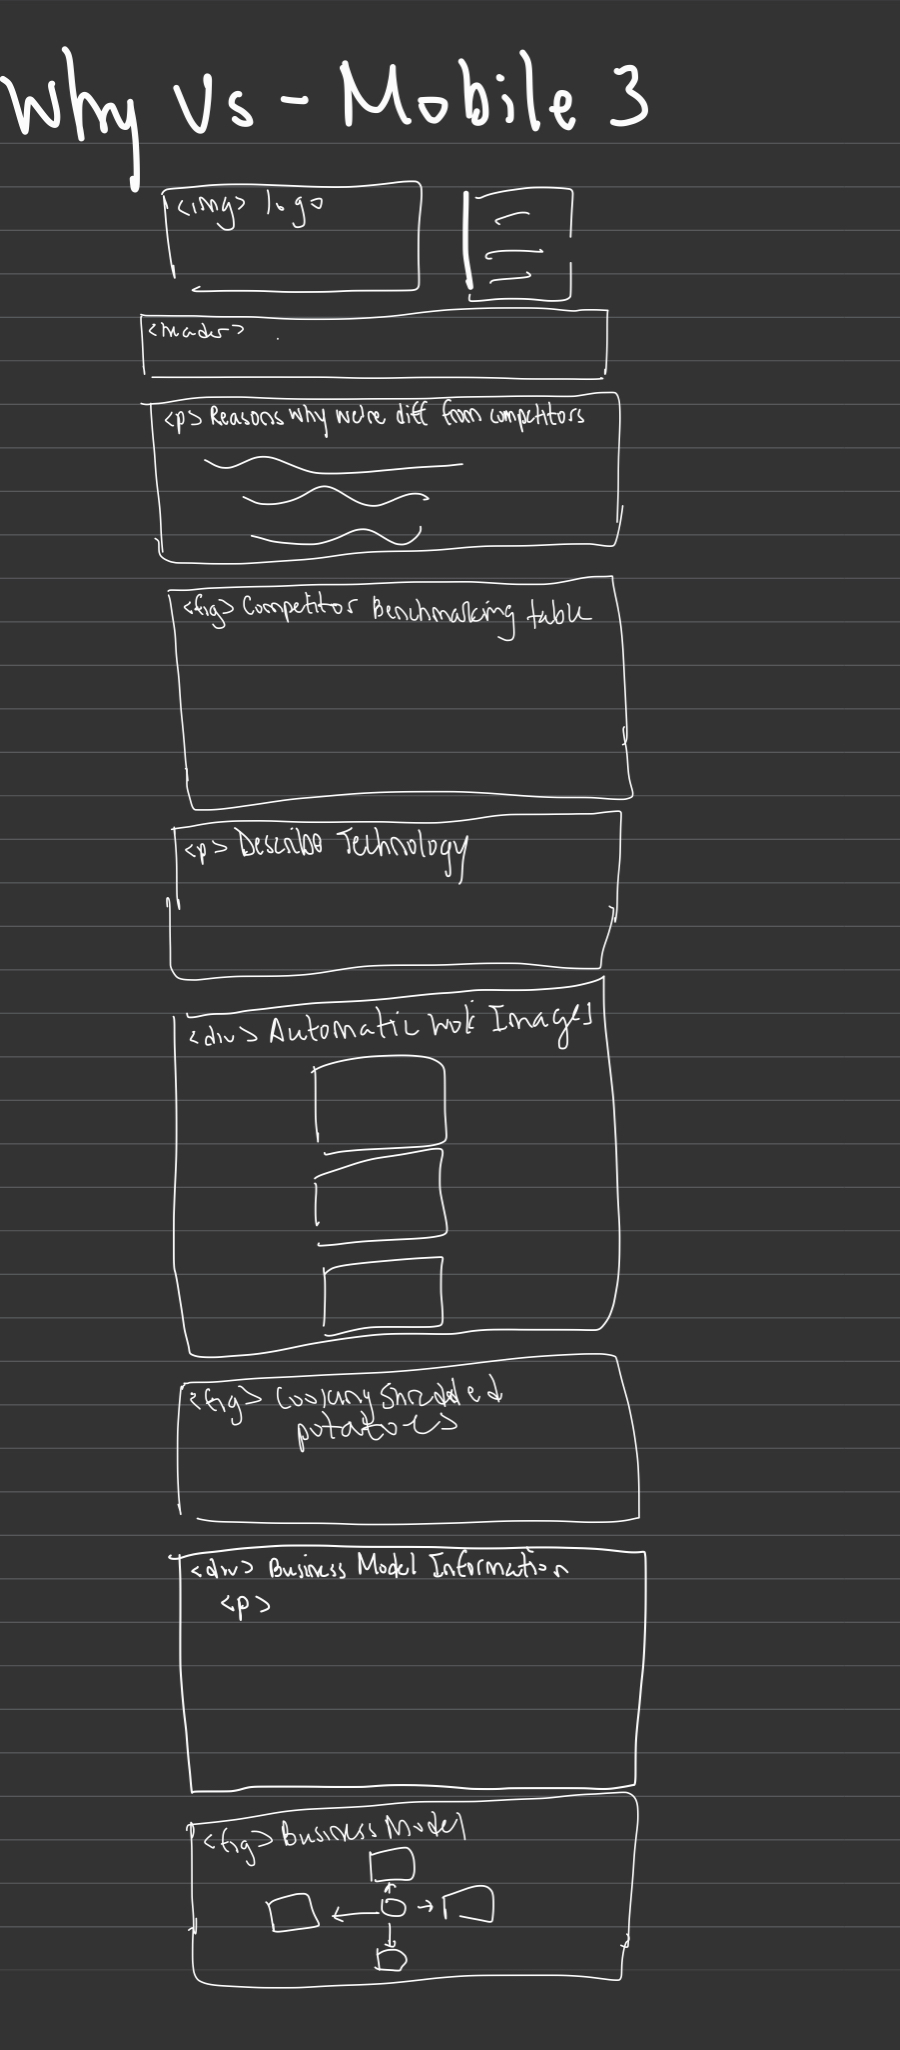 Why Vs - Mobile 3
<img> logo
<header>
<p> Reasons why we're diff from competitors
<fig> Competitor Benchmarking table
<p> Describe Technology
<div> Automatic Wok Images
<fig> Cooking Shredded
potatoes
<div> Business Model Information
<p>
<fig> Business Model